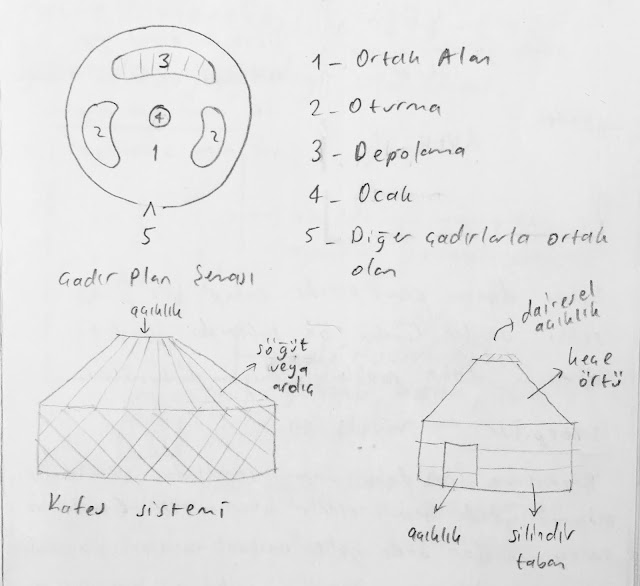 3
2
4
2
1
5
1- Ortak Alan
2- Oturma
3- Depolama
4- Ocak
5- Diğer çadırlarla ortak
alan
Çadır Plan Şeması
açıklık
söğüt
veya
ardıç
Kafes sistemi
dairesel
açıklık
keçe
örtü
açıklık
silindir
taban